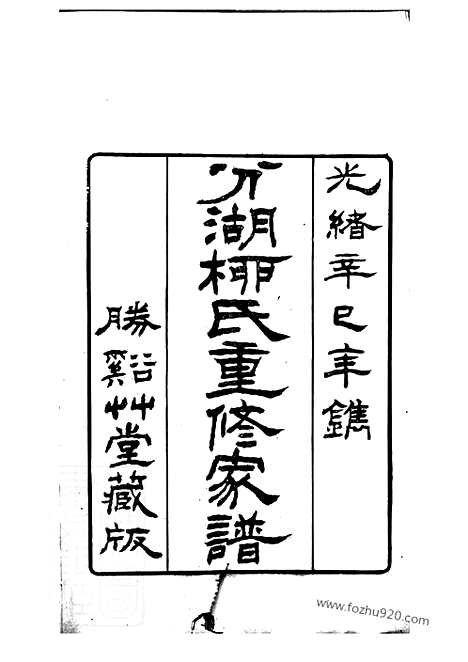 光緒辛巳年鐫
分湖桺氏重修家譜
勝谿艸堂藏版
www.fozhu920.com